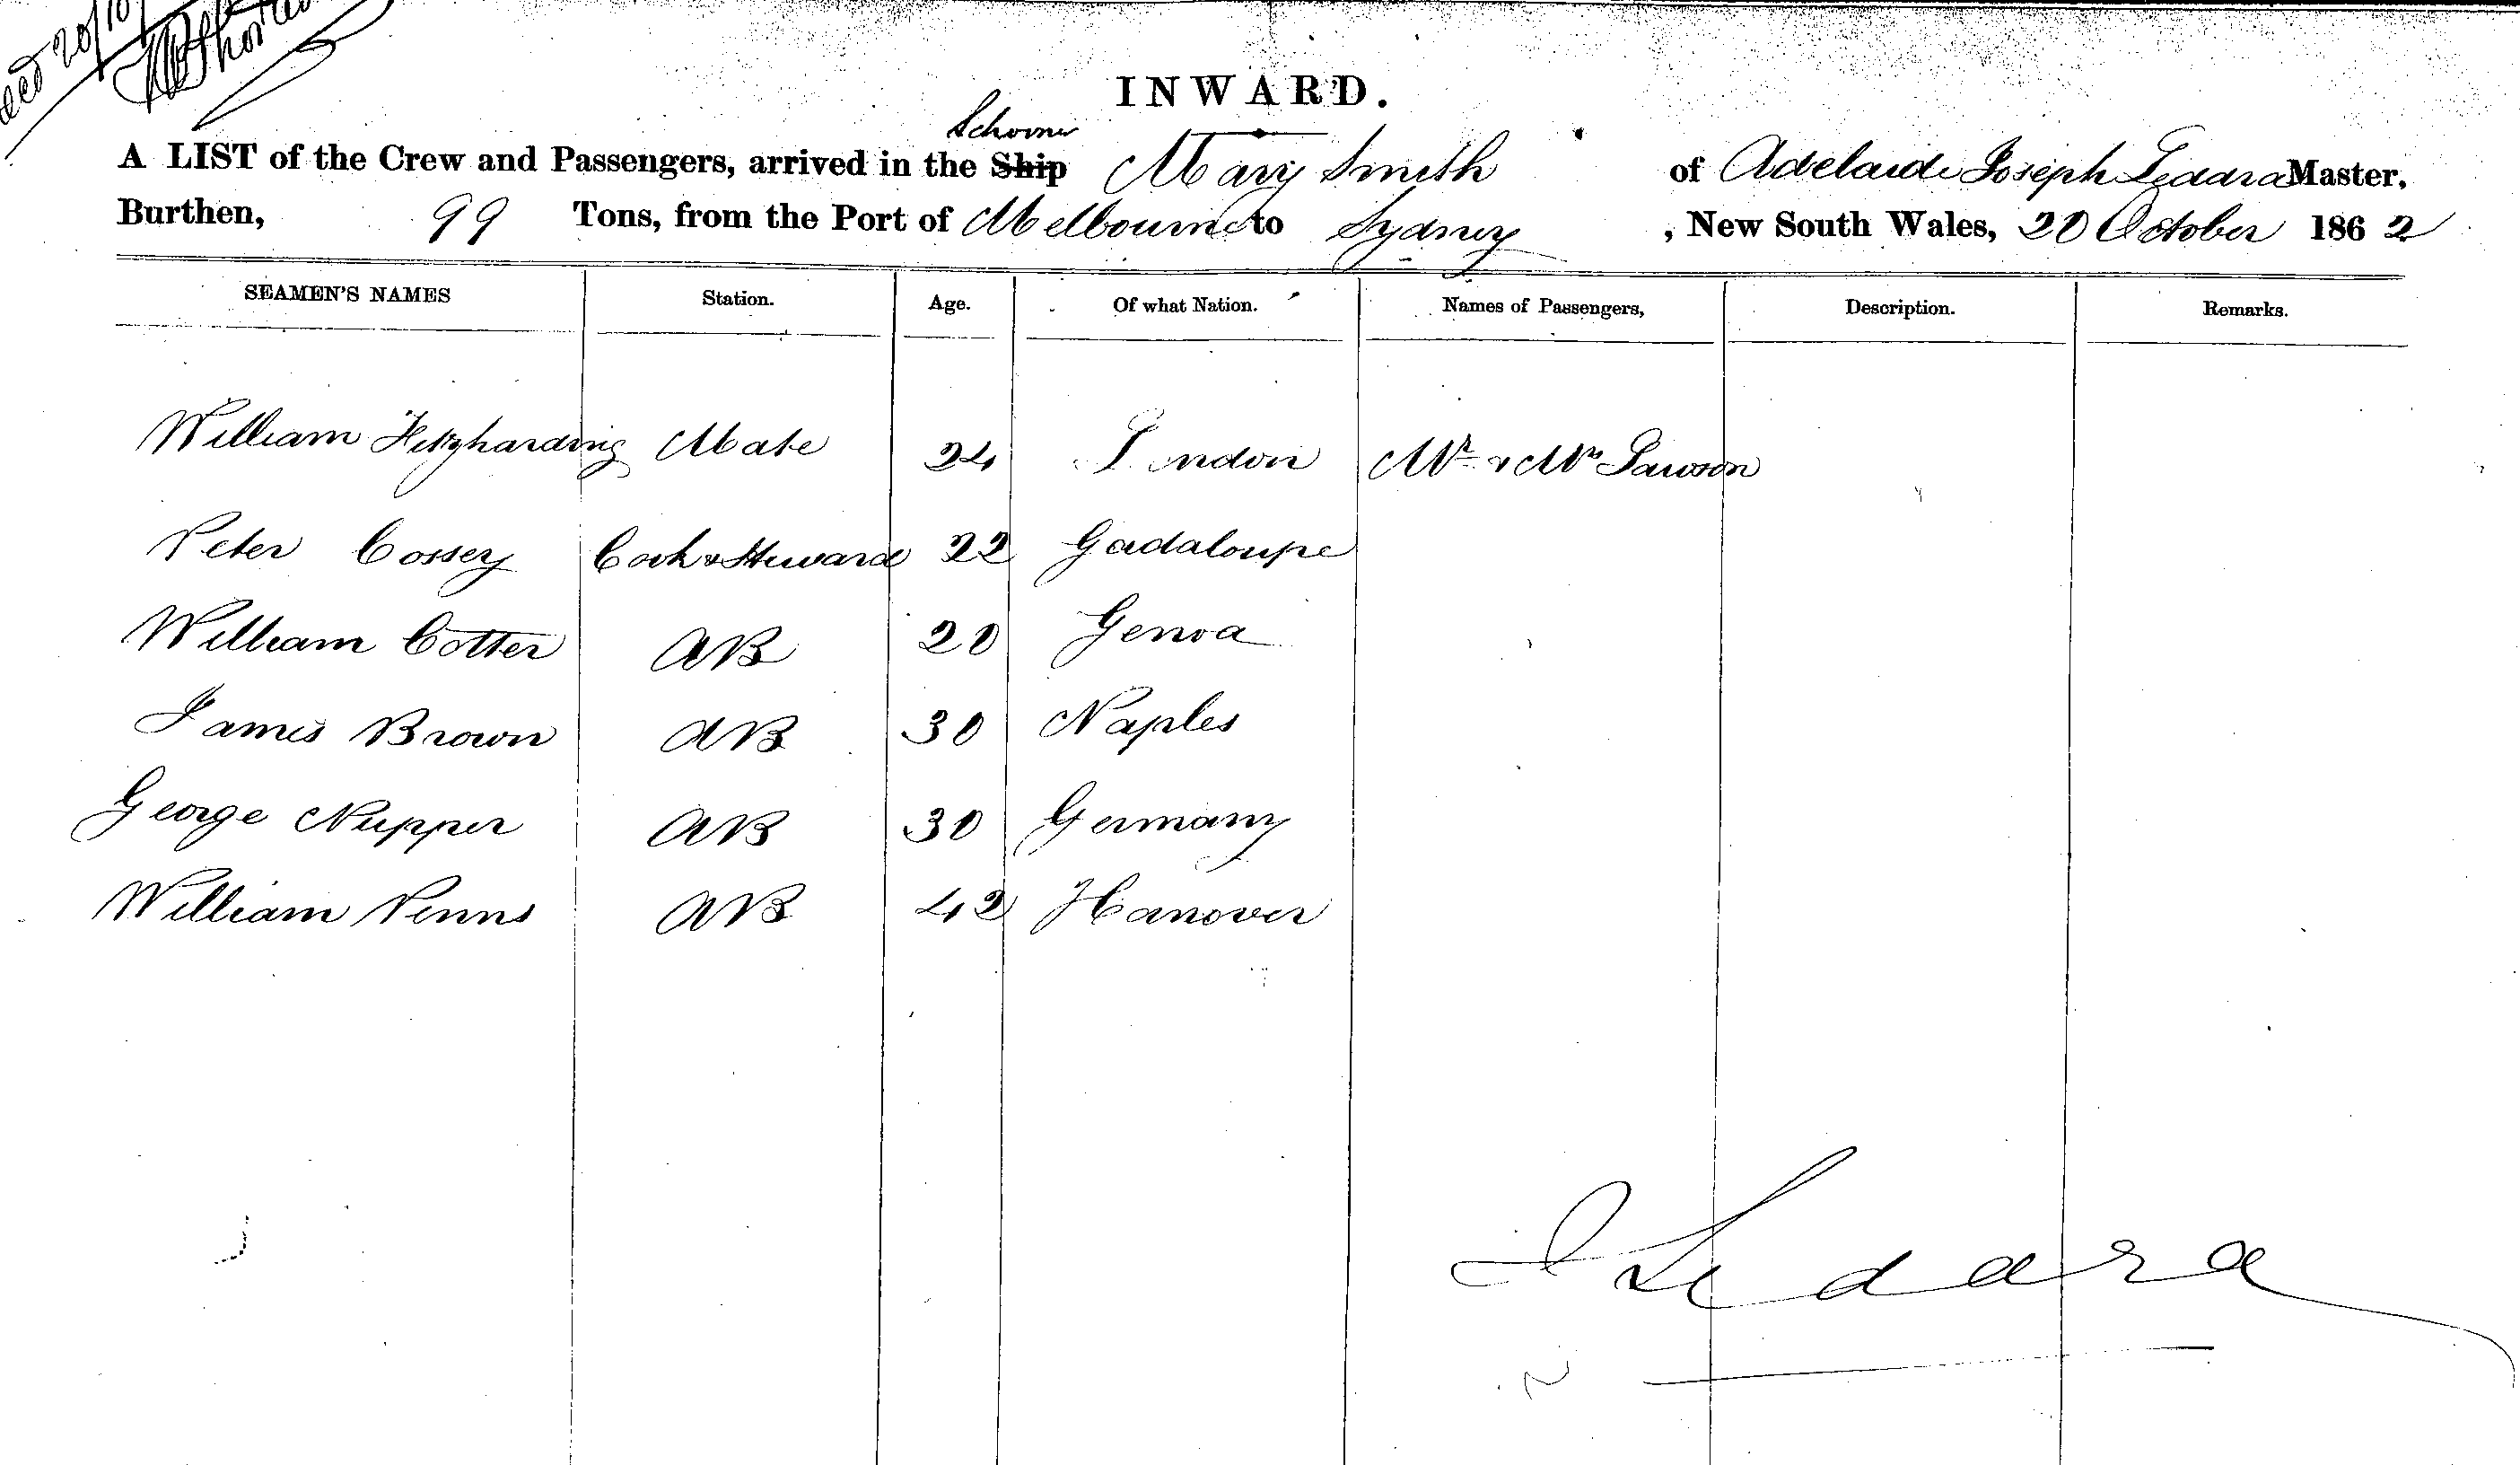 recd 20/10
INWARD.
Schooner
A LIST of the Crew and Passengers, arrived in the Ship Mary Smith of Adelaide Joseph Ledara Master,
Burthen, 99 Tons, from the Port of Melbourne to Sydney, New South Wales, 20 October 1862
SEAMEN'S NAMES Station. Age. Of what Nation. Names of Passengers, Description. Remarks.
William Fitzharding Mate 24 London Mr & Mrs Lawson
Peter Cossey Cook & Steward 22 Gadaloupe
William Cotter AB 20 Genoa
James Brown AB 30 Naples
George Nupper AB 30 Germany
William Penns AB 42 Hanover
J Ledara